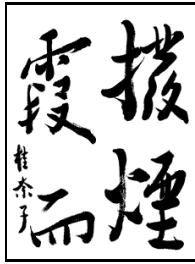 撥煙
霞而
桂奈子